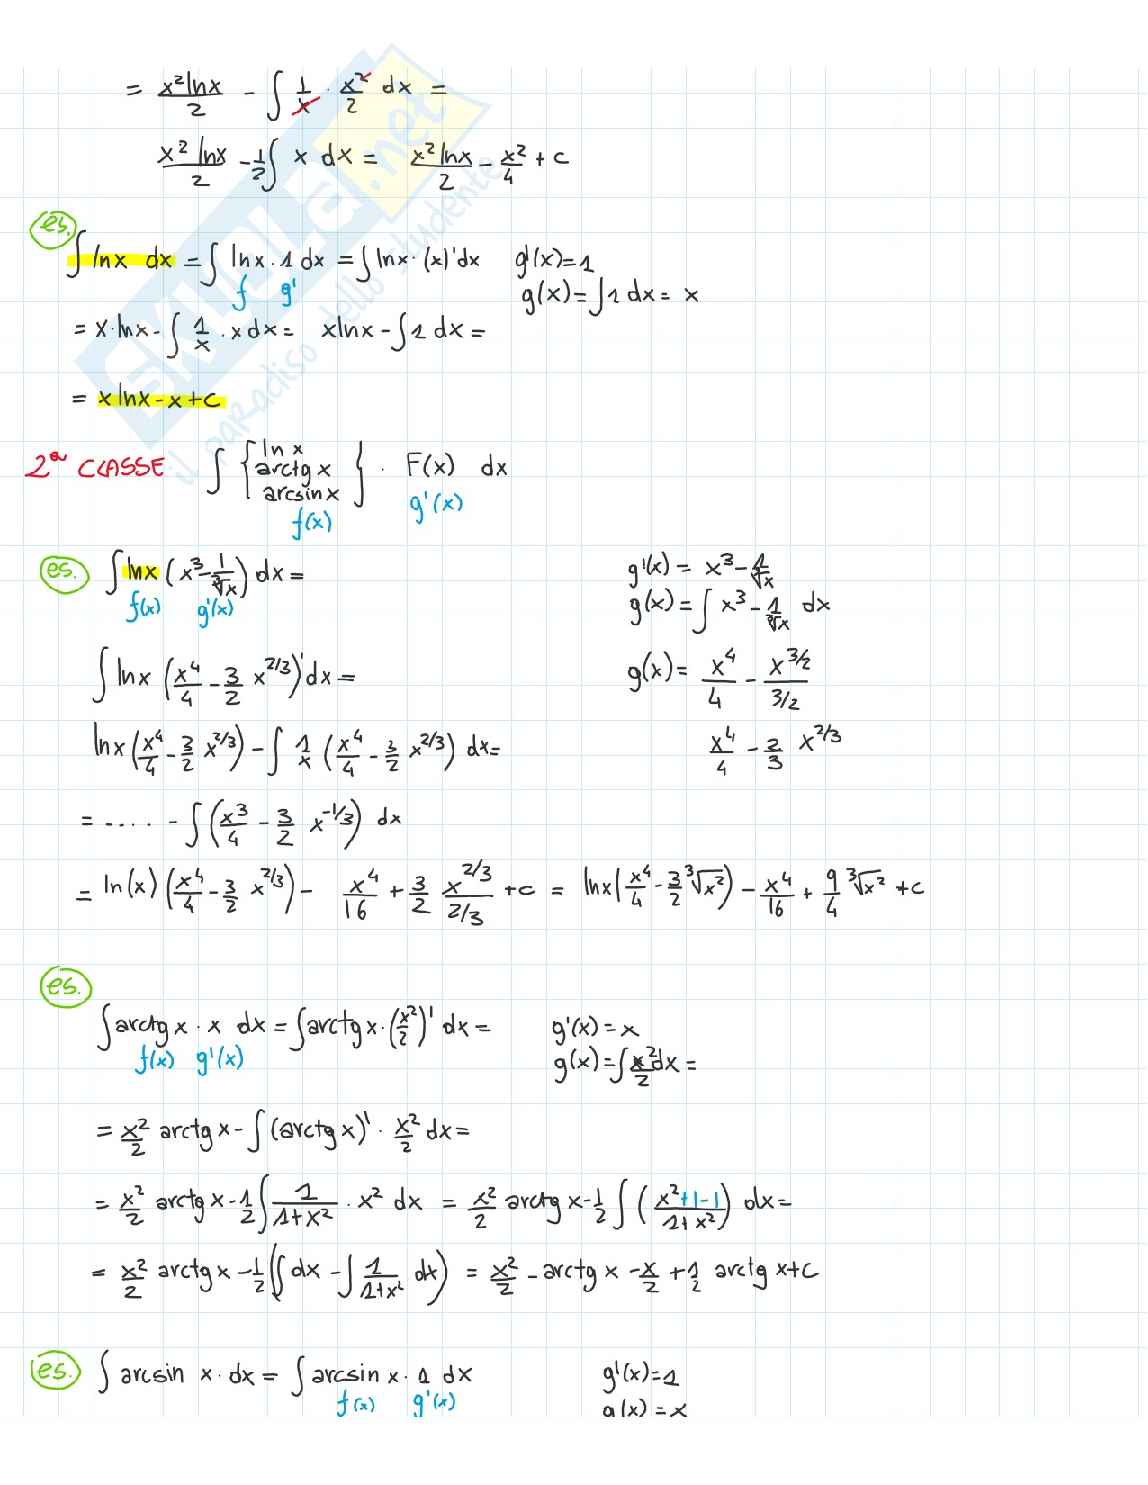 = x² lnx / 2 - ∫ 1/x · x²/2 dx =
x² lnx / 2 - 1/2 ∫ x dx = x² lnx / 2 - x²/4 + c
es.
∫ lnx dx = ∫ lnx · 1 dx = ∫ lnx · (x)' dx g'(x)=1
f g' g(x)= ∫ 1 dx = x
= x · lnx - ∫ 1/x · x dx = xlnx - ∫ 1 dx =
= x lnx - x + c
2ª CLASSE ∫ { ln x
arctg x } · F(x) dx
arcsin x
f(x) g'(x)
es. ∫ lnx (x³ - 1/∛x) dx = g'(x) = x³ - 1/∛x
f(x) g'(x) g(x) = ∫ x³ - 1/∛x dx
∫ lnx (x⁴/4 - 3/2 x^2/3)' dx = g(x) = x⁴/4 - x^3/2 / 3/2
lnx (x⁴/4 - 3/2 x^2/3) - ∫ 1/x (x⁴/4 - 3/2 x^2/3) dx = x⁴/4 - 2/3 x^2/3
= .... - ∫ (x³/4 - 3/2 x^-1/3) dx
= ln(x) (x⁴/4 - 3/2 x^2/3) - x⁴/16 + 3/2 x^2/3 / 2/3 + c = lnx (x⁴/4 - 3/2 ∛x²) - x⁴/16 + 9/4 ∛x² + c
es.
∫ arctg x · x dx = ∫ arctg x · (x²/2)' dx = g'(x) = x
f(x) g'(x) g(x) = ∫ x²/2 dx =
= x²/2 arctg x - ∫ (arctg x)' · x²/2 dx =
= x²/2 arctg x - 1/2 ∫ 1/1+x² · x² dx = x²/2 arctg x - 1/2 ∫ (x²+1-1 / 1+x²) dx =
= x²/2 arctg x - 1/2 (∫ dx - ∫ 1/1+x² dx) = x²/2 - arctg x - x/2 + 1/2 arctg x + c
es. ∫ arcsin x · dx = ∫ arcsin x · 1 dx g'(x)=1
f(x) g'(x) g(x) = x
SKUOLA.net
il paradiso dello studente